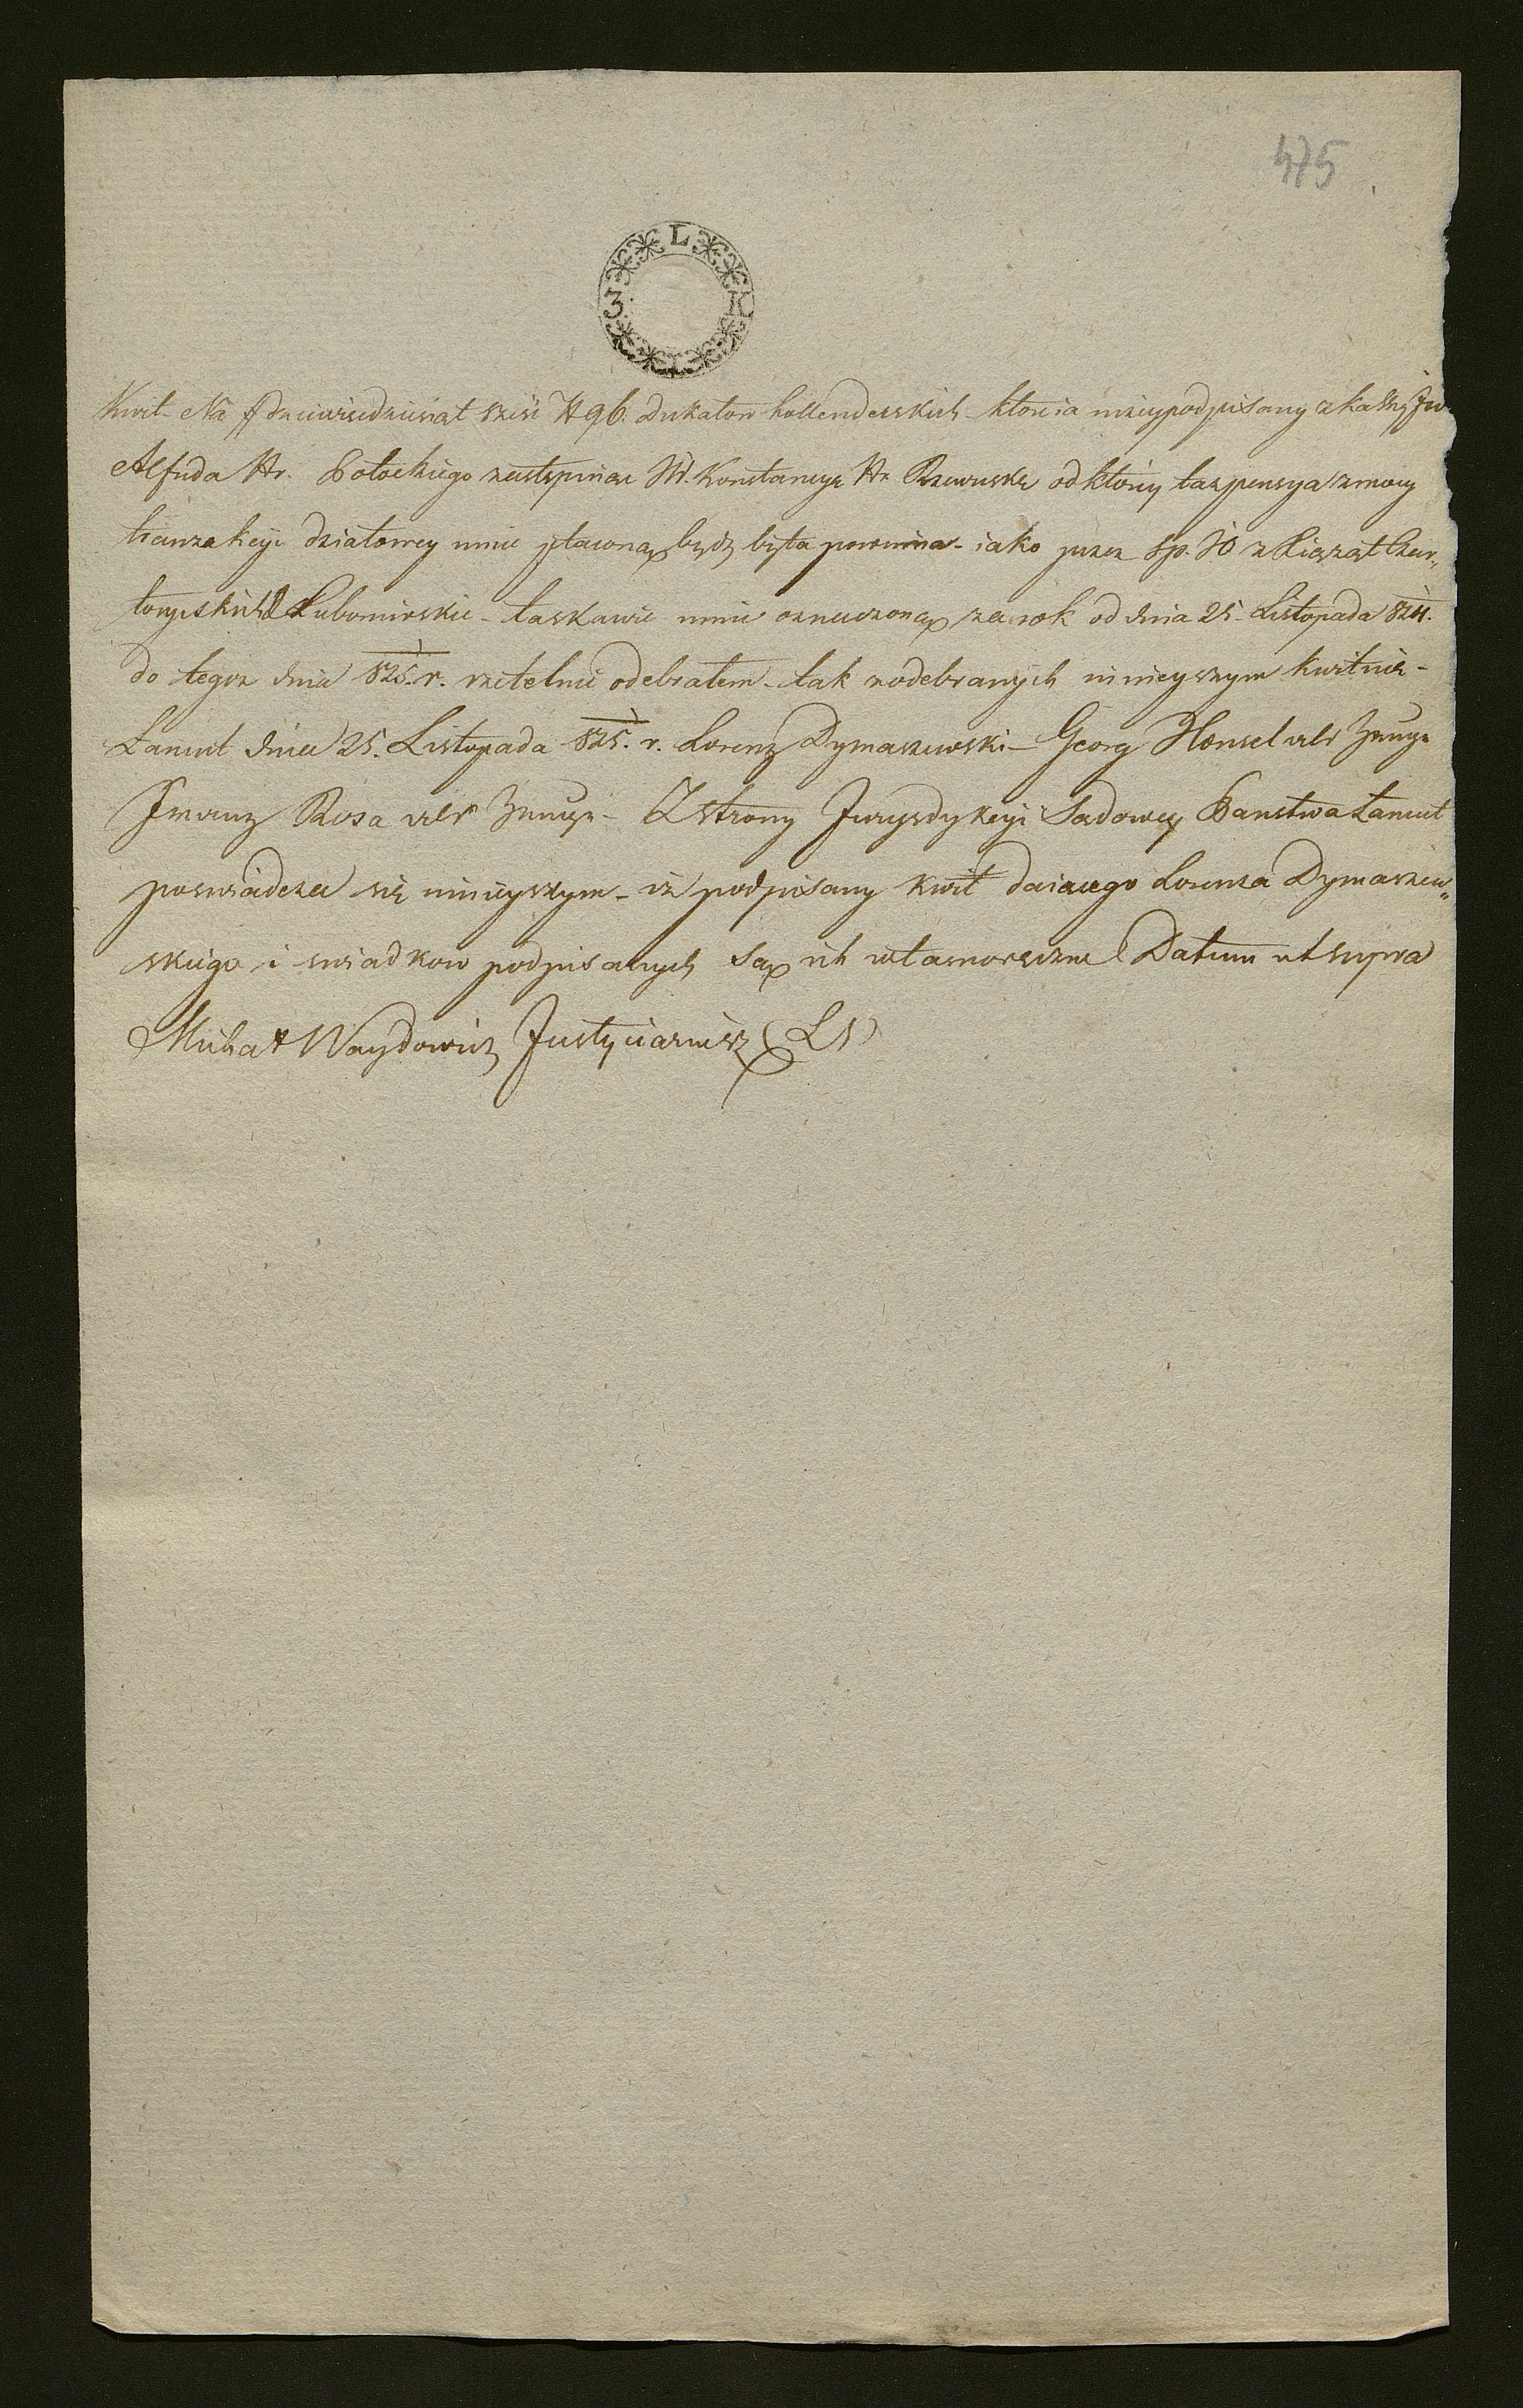 475
L
3 K
I
Kwit Na # dziewiedziesiąt sześć # 96. Dukatow hollenderskich które ia niżeypodpisany z kassy JW
Alfreda Hr. Potockiego zastępuiąc JW. Konstancyę Hr Rzewuskę od któréy taż pensya z mocy
tranzakcyi działowey mnie płaconą bydź była powinna - iako przez śp. JO z Xiążąt Czar„
toryiskich Lubomirskie - łaskawie mnie oznaczoną za rok od dnia 25. Listopada 824.
do tegoż dnia 825. r. rzetelnie odebrałem - tak z odebranych ninieyszym kwituię -
Łancut dnia 25. Listopada 825. r. Lorenz Dymaszewski - Georg Hensel als Zeuge
Franz Rosa als Zeuge - Z strony Juryzdykcyi Sądowey Państwa Łancut
poswiadcza się ninieyszym - iż podpisany kwit daiącego Lorenza Dymaszew„
skiego i swiadkow podpisanych są ich własnoręczne Datum ut supra
Michał Waydowicz Justyciariusz (LS)